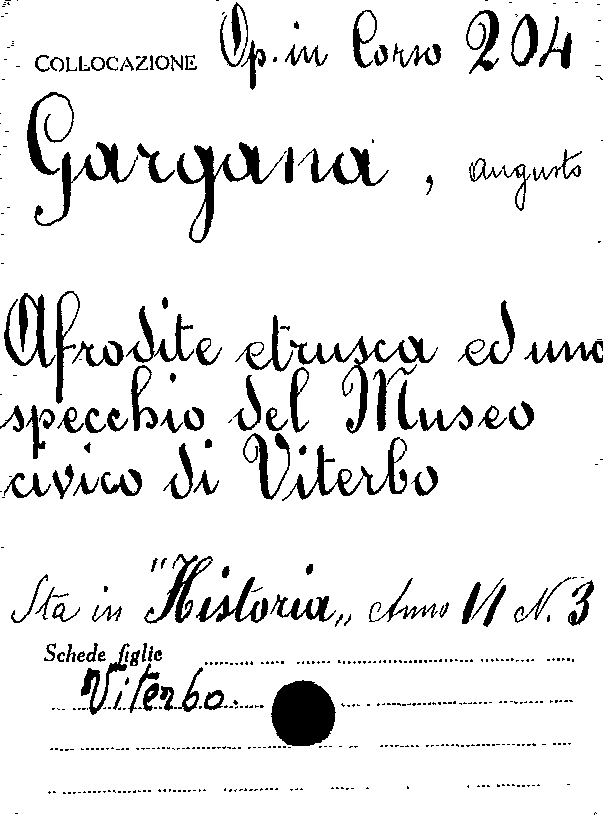 COLLOCAZIONE Op. in Corso 204
Gargana, Augusto
Afrodite etrusca ed uno
specchio del Museo
civico di Viterbo
Sta in "Historia„ Anno VI N. 3
Schede figlie
Viterbo.